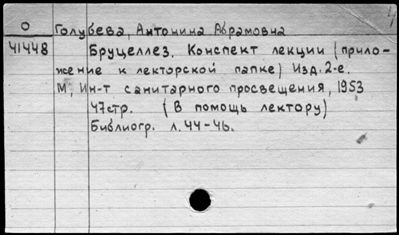 О Голубева, Антонина Абрамовна
41448 Бруцеллез. Конспект лекции (прило-
жение к лекторской папке) Изд. 2-е.
М., Ин-т санитарного просвещения, 1953
47стр. (В помощь лектору)
Библиогр. л. 44-46.